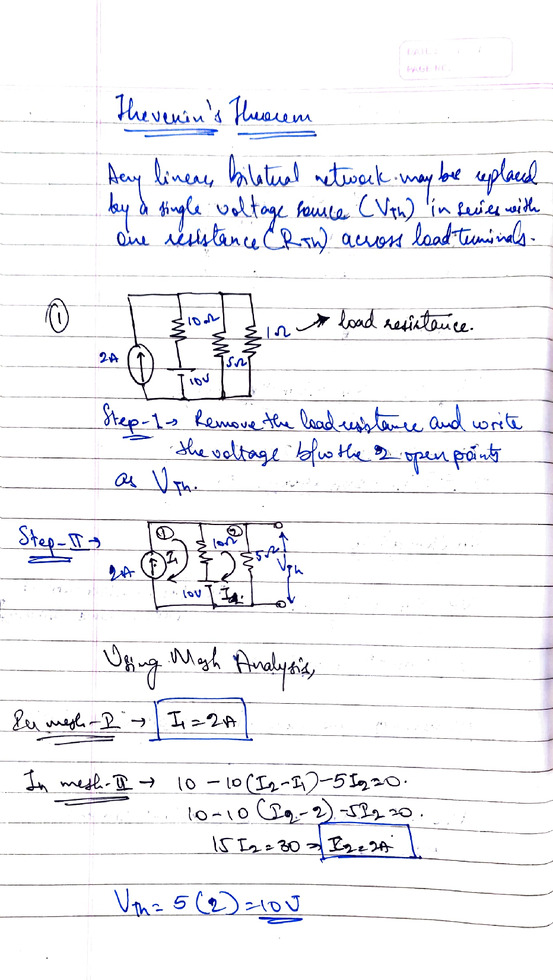 Thevenin's Theorem
Any linear, bilateral network may be replaced
by a single voltage source (VTh) in series with
one resistance (RTH) across load terminals.
①
10Ω
1Ω → load resistance.
2A
5Ω
10V
Step-I → Remove the load resistance and write
the voltage b/w the 2 open points
as VTh.
Step-II →
① ②
I1 10Ω 5Ω VTh
2A
10V I2
Using Mesh Analysis,
mesh-I → I1 = 2A
In mesh-II → 10 - 10(I2-I1) - 5I2=0.
10-10(I2-2)-5I2=0.
15I2=30 ⇒ I2=2A
VTh = 5(2)=10V